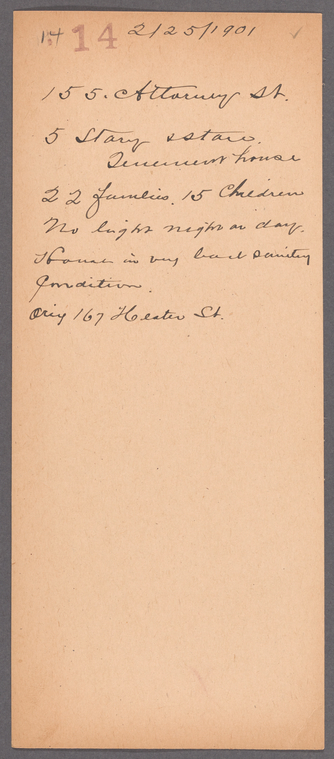 14 14 2/25/1901
155. Attorney St.
5 Story & store.
Tenement house
22 families. 15 Children
No light night or day.
House in very bad sanitry
Condition.
167 Hester St.